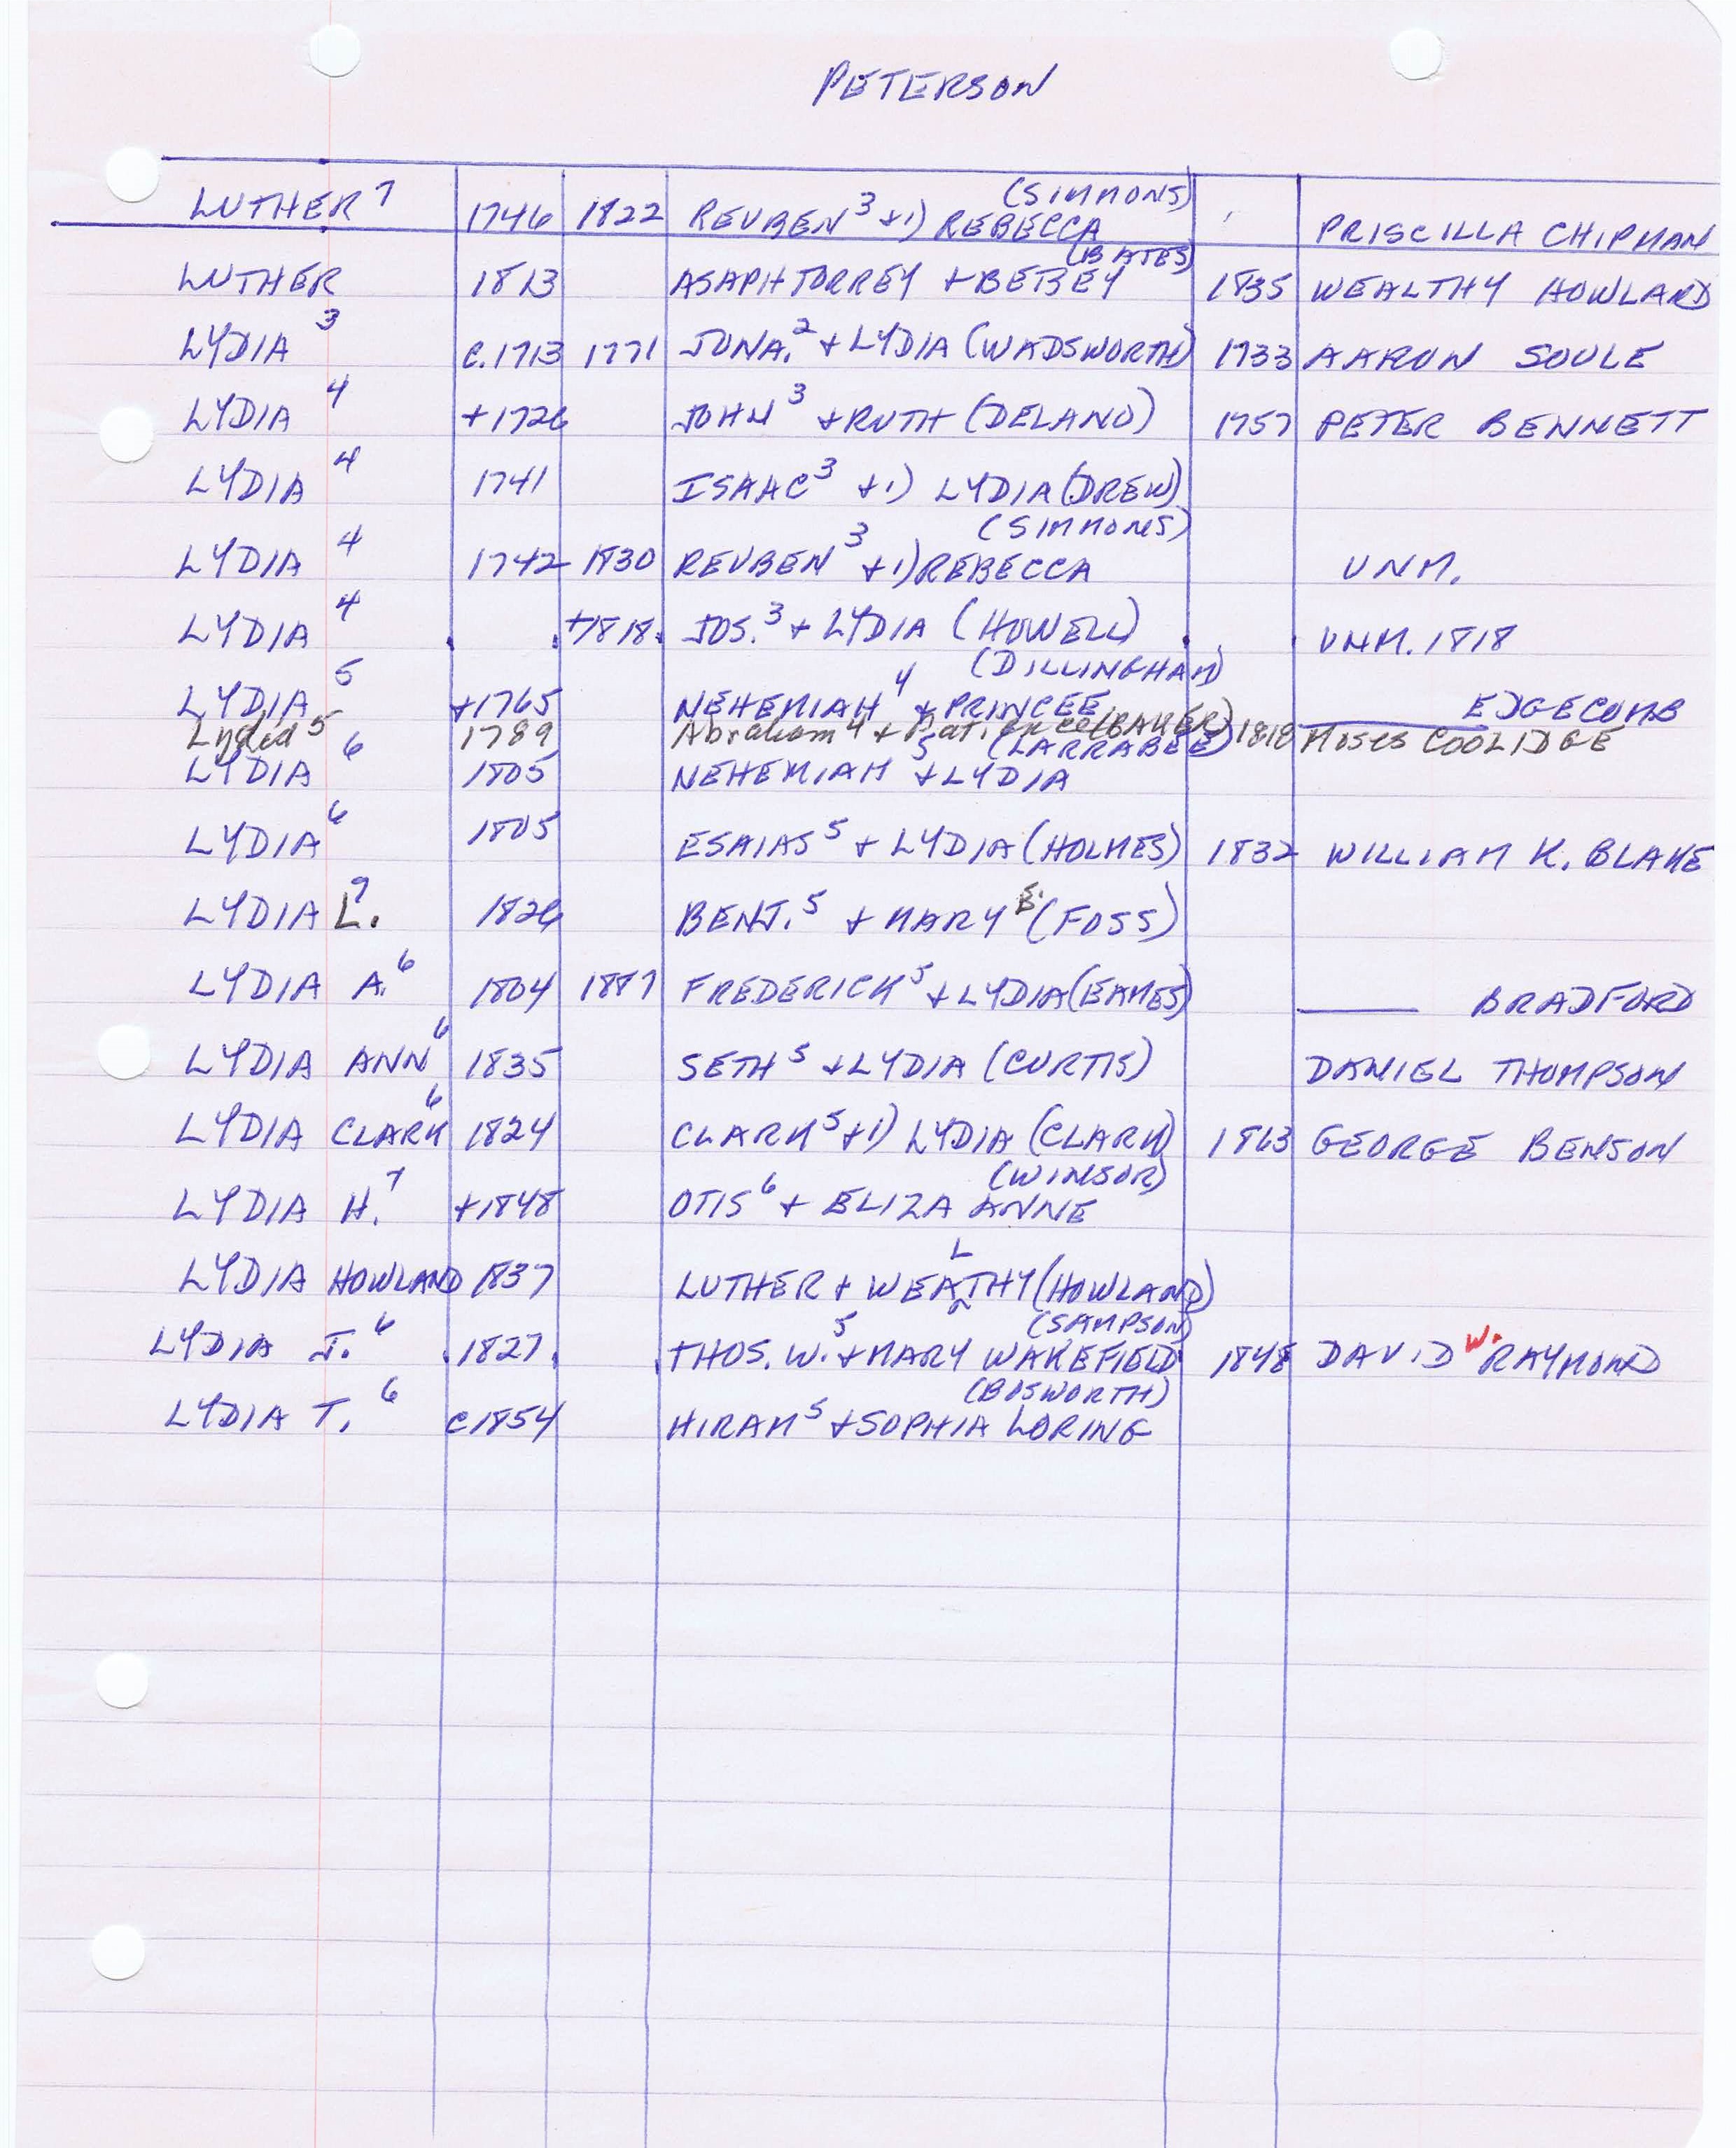 PETERSON
(SIMMONS)
LUTHER 7 1746 1822 REUBEN 3 + 1) REBECCA PRISCILLA CHIPMAN
(BATES)
LUTHER 1813 ASAPH TORREY + BETSEY 1835 WEALTHY HOWLARD
LYDIA 3 C.1713 1771 JONA. 2 + LYDIA (WADSWORTH) 1733 AARON SOULE
LYDIA 4 +1726 JOHN 3 + RUTH (DELANO) 1757 PETER BENNETT
LYDIA 4 1741 ISAAC 3 + 1) LYDIA (DREW)
(SIMMONS)
LYDIA 4 1742 1830 REUBEN 3 + 1) REBECCA UNM.
LYDIA 4 +1818 JOS. 3 + LYDIA (HOWELL) UNM. 1818
(DILLINGHAM)
LYDIA 5 +1765 NEHEMIAH 4 + PRINCEE EDGECOMB
Lydia 5 1789 Abraham 4 + Patience (BAKER) 1818 MOSES COOLIDGE
(LARRABEE)
LYDIA 6 1805 NEHEMIAH 5 + LYDIA
LYDIA 6 1805 ESAIAS 5 + LYDIA (HOLMES) 1832 WILLIAM K. BLAKE
LYDIA L. 1826 BENJ. 5 + MARY B. (FOSS)
LYDIA A. 6 1804 1887 FREDERICK 5 + LYDIA (EAMES) BRADFORD
LYDIA ANN 6 1835 SETH 5 + LYDIA (CURTIS) DANIEL THOMPSON
LYDIA CLARK 6 1824 CLARK 5 + 1) LYDIA (CLARK) 1863 GEORGE BENSON
(WINSOR)
LYDIA H. 7 +1848 OTIS 6 + ELIZA ANNE
L
LYDIA HOWLAND 1837 LUTHER + WEATHY (HOWLAND)
(SAMPSON)
LYDIA J. 6 1827 THOS. W. 5 + MARY WAKEFIELD 1848 DAVID W. RAYMOND
(BOSWORTH)
LYDIA T. 6 C1854 HIRAM 5 + SOPHIA LORING